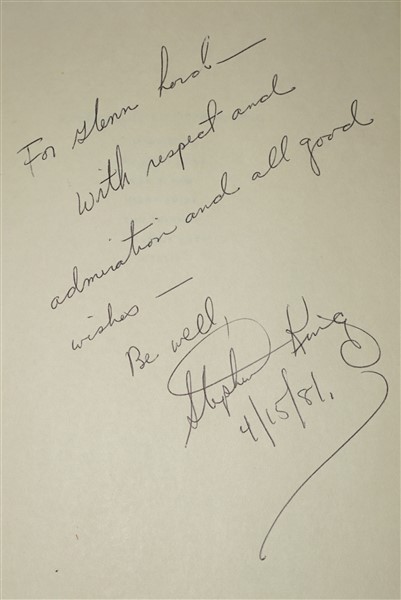 For Glenn Lord—
With respect and
admiration and all good
wishes —
Be well,
Stephen King
4/15/81.